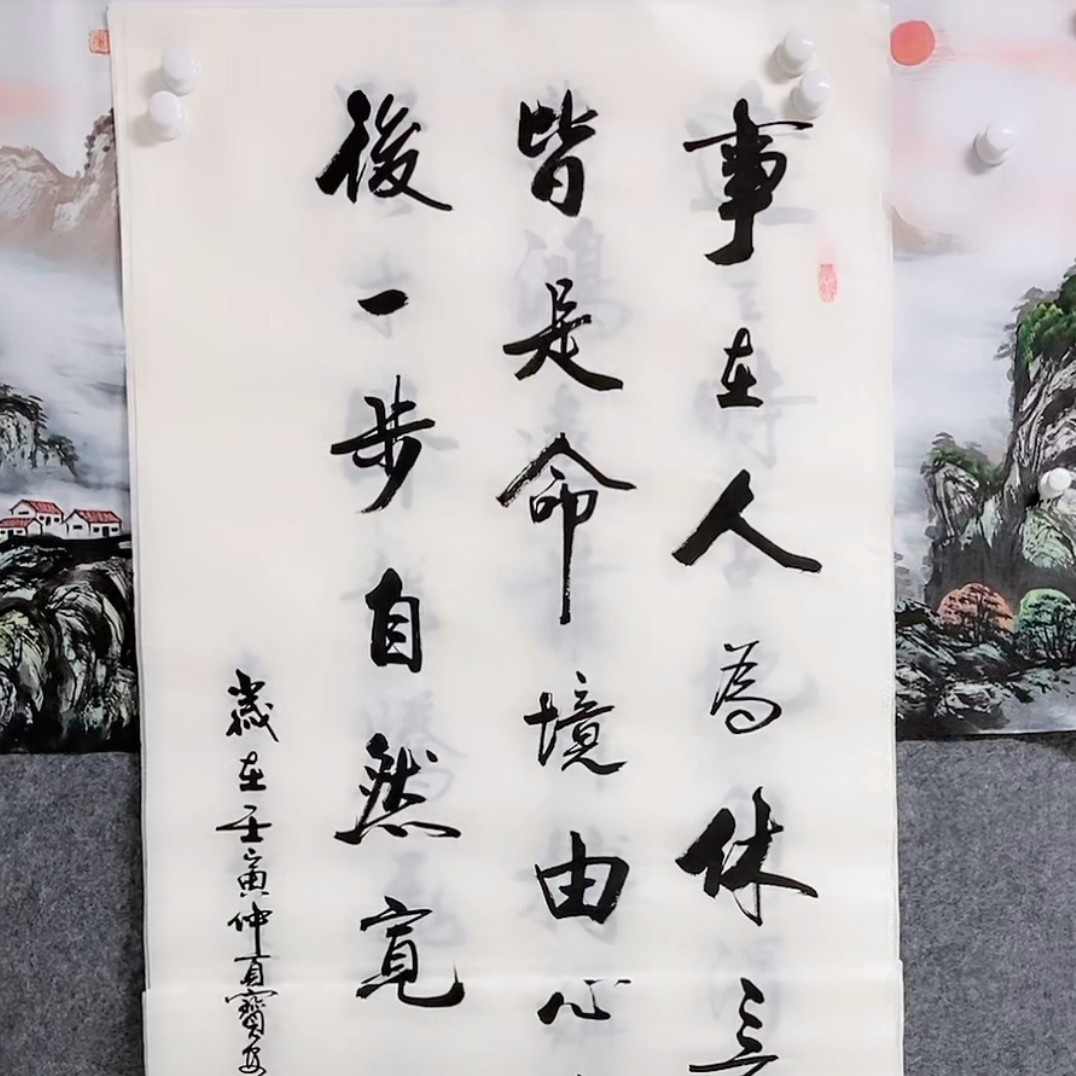 事在人為休言
皆是命境由心
後一步自然寬
歲在壬寅仲夏寶安